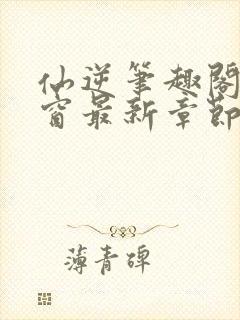 仙逆笔趣阁
窗最新章节
薄青碑